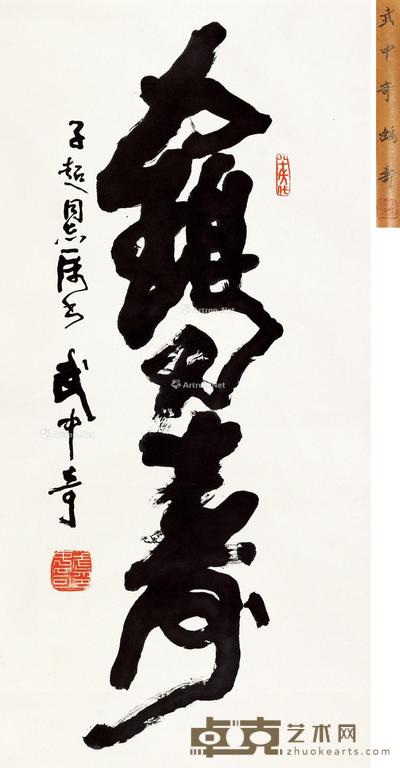 鶴寿
子超同志属书
武中奇
武中奇 鹤寿
Artron.Net
卓克艺术网
zhuokearts.com